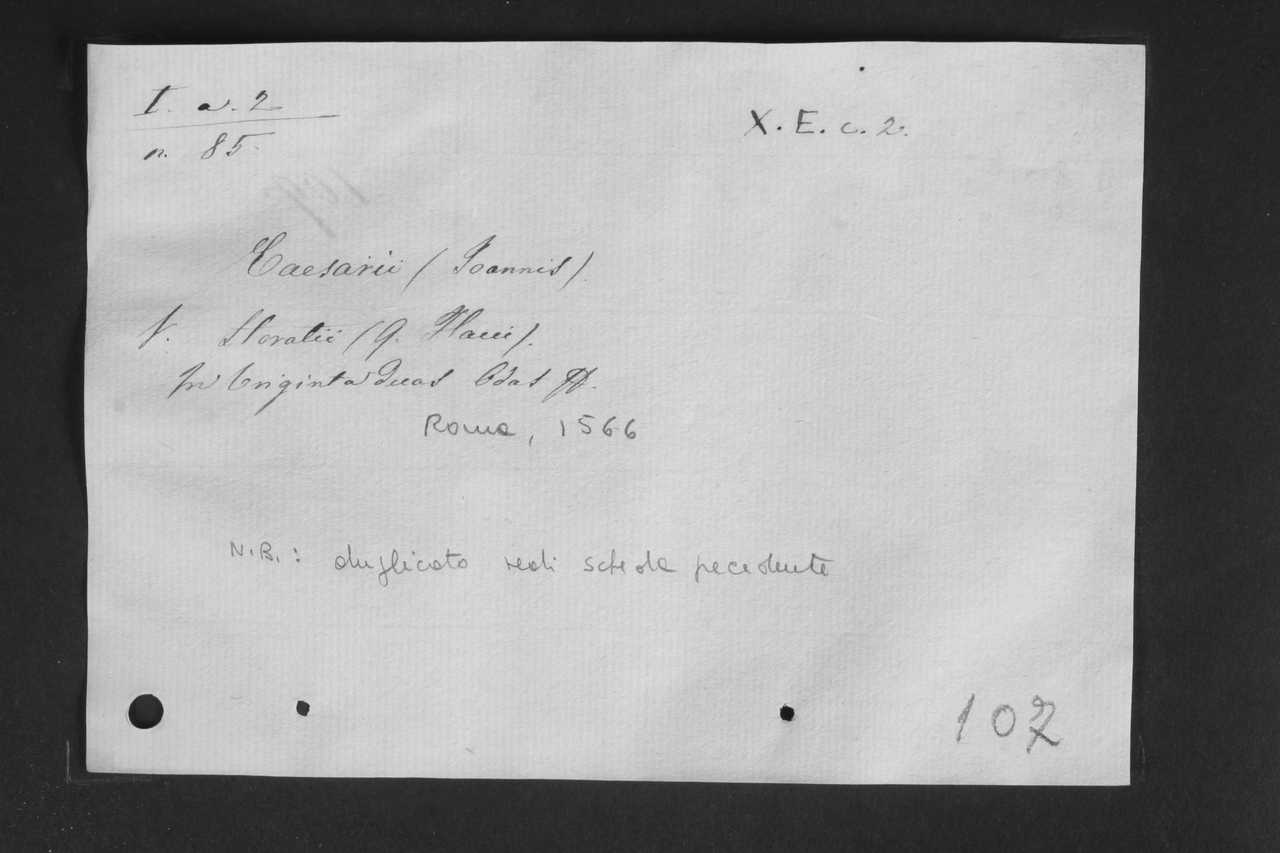 I. a. 2
X. E. c. 2.
n. 85.
Caesarii (Joannis).
V. Horatii (Q. Flacci).
In Triginta duas Odas
Roma, 1566
N.B.: duplicato vedi scheda precedente
107